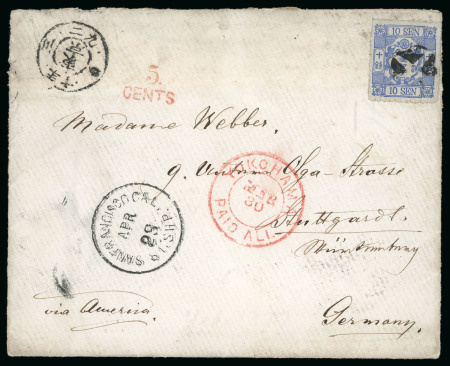 10 SEN
10 SEN
5.
CENTS
Madame Webber.
9. Olga-Strasse
YOKOHAMA
MAR
30
PAID ALL
Stuttgardt
SAN FRANCISCO CAL.
APR
29
Würtemberg
via America.
Germany.